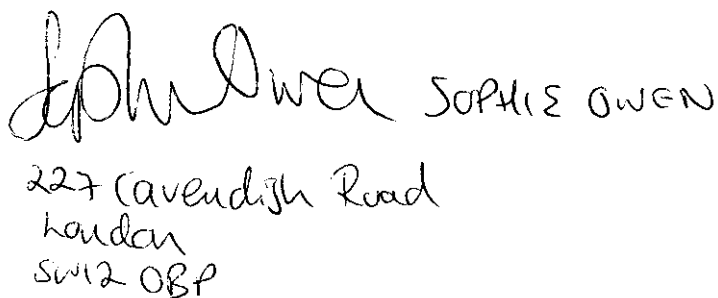 Sophie Owen SOPHIE OWEN
227 Cavendish Road
London
SW12 0BP